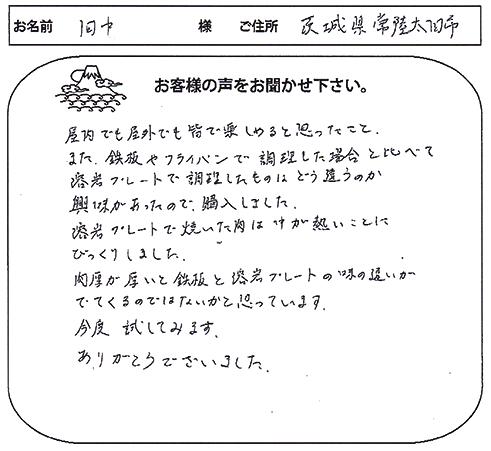 お名前 田中 様 ご住所 茨城県常陸太田市
お客様の声をお聞かせ下さい。
屋内でも屋外でも皆で楽しめると思ったこと、
また、鉄板やフライパンで調理した場合と比べて
溶岩プレートで調理したものはどう違うのか
興味があったので、購入しました。
溶岩プレートで焼いた肉は中が熱いことに
びっくりしました。
肉厚が厚いと鉄板と溶岩プレートの味の違いが
でてくるのではないかと思っています。
今度 試してみます。
ありがとうございました。